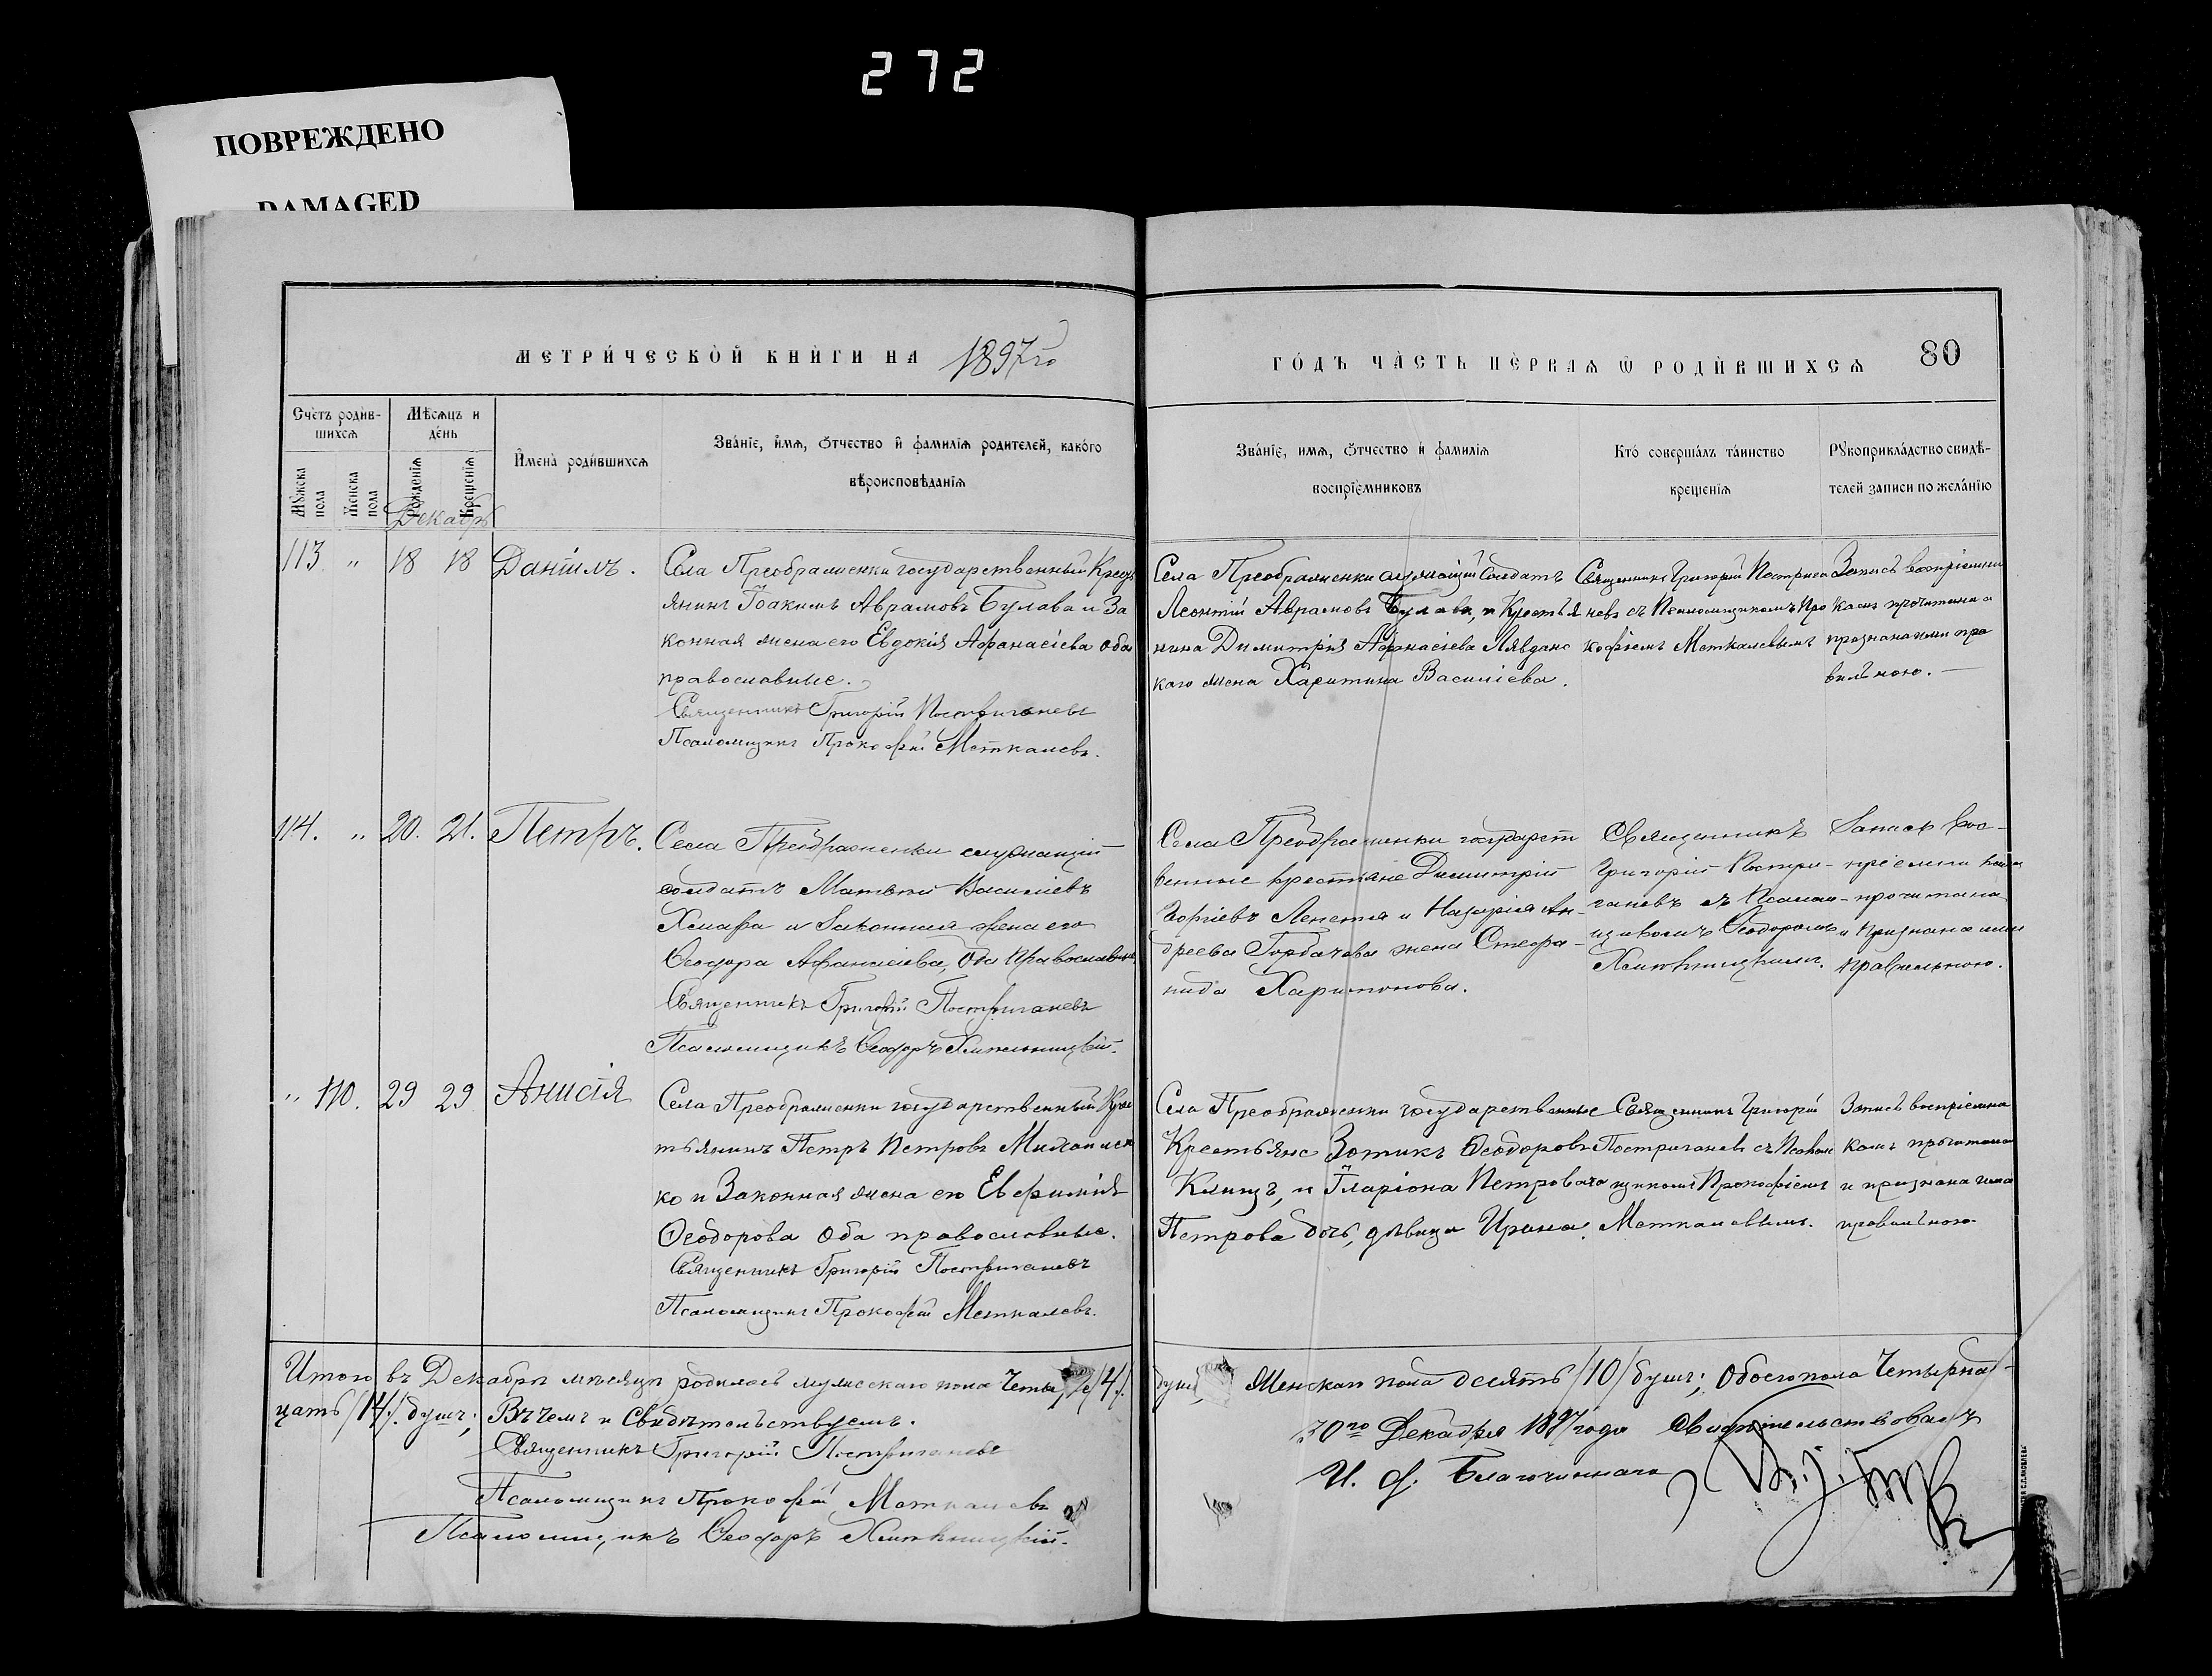 272
ПОВРЕЖДЕНО
DAMAGED
МЕТРИ́ЧЕСКОЙ КНИ́ГИ НА 1897го
ГО́ДЪ ЧА́СТЬ ПЕ́РВАѦ Ѡ РОДИ́ВШИХСѦ 80
Сче́тъ роди́в-
шихсѧ
Мꙋжска пола
Женска пола
Мѣсѧцъ и
де́нь
Рожденїѧ
Крещенїѧ
Декабрь
И҆мена̀ роди́вшихсѧ
Зва́нїе, и҆мѧ, ѻ҆тчество и҆ фамилїѧ родителей, како́го
вѣроисповѣданїѧ
Зва́нїе, имѧ, ѻ҆тчество и҆ фамилїѧ
воспрїемниковъ
Кто̀ соверша́лъ та́инство
крещенїѧ
Рꙋкоприкла́дство свидѣ-
телей записи по жела́нїю
113. „ 18 18 Даніилъ.
Села Преображенки государственный Крест
янинъ Іоакимъ Аврамовъ Булава и За
конная жена его Евдокія Афанасіева оба
православные.
Священникъ Григорій Постригачевъ
Псаломщикъ Прокофій Меткалевъ.
Села Преображенки служащій Солдатъ
Леонтій Аврамовъ Булава, и Крестья
нина Димитрія Афанасіева Лявданс
каго жена Харитина Василіева.
Священникъ Григорій Пострига
чевъ съ Псаломщикомъ Про
кофіемъ Меткалевымъ
Запись воспріемни
камъ прочитана и
признана ими пра
вильною.
114. „ 20. 21. Петръ.
Села Преображенки служащій
солдатъ Матвей Василіевъ
Хмара и Законная жена его
Ѳеодора Афанасіева, Оба Православные.
Священникъ Григорій Постригачевъ
Псаломщикъ Ѳеодоръ Хмельницкій.
Села Преображенки государст
венные крестьяне Димитрій
Георгіевъ и Назарія Ан-
дреева Горбачова жена Стефа-
нида Харитонова.
Священникъ
Григорій Постри-
гачевъ съ Псалом-
щикомъ Ѳеодоромъ
Хмельницкимъ.
Запись вос-
пріемникамъ
прочитана
и Признана ими
правильною.
„ 110. 29 29 Анисія
Села Преображенки государственный Крес
тьянинъ Петръ Петровъ Михаилен
ко и Законная жена его Евфимія
Ѳеодорова Оба православные.
Священникъ Григорій Постригачевъ
Псаломщикъ Прокофій Меткалевъ.
Села Преображенки государственные
Крестьяне Зотикъ Ѳеодоровъ
Клищъ, и Иларіона Петровича
Петрова дочь, дѣвица Ирина.
Священникъ Григорій
Постригачевъ съ Псалом
щикомъ Прокофіемъ
Меткалевымъ.
Запись воспріемни
камъ прочитана
и признана ими
правильною
Итого въ Декабрѣ мѣсяцѣ родилось мужескаго пола Четыре /4/.
душъ, Женскаго пола десять /10/ душъ; Обоего пола Четырна-
цать /14/. душъ; Въ чемъ и Свидѣтельствуемъ.
Священникъ Григорій Постригачевъ
Псаломщикъ Прокофій Меткалевъ
Псаломщикъ Ѳеодоръ Хмельницкій.
30го Декабря 1897 года Свидѣтельствовалъ
И. д. Благочиннаго